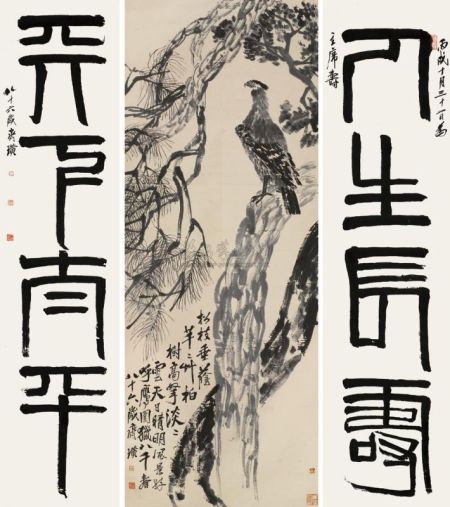 人生長壽
丙戌十月三十一日為
主席壽
松枝垂蔭
芊〻艸柏
樹高擎淡〻
雲天日晴明風景好
呼鷹圍獵八千壽
八十六歲齊璜
天下太平
八十六歲齊璜